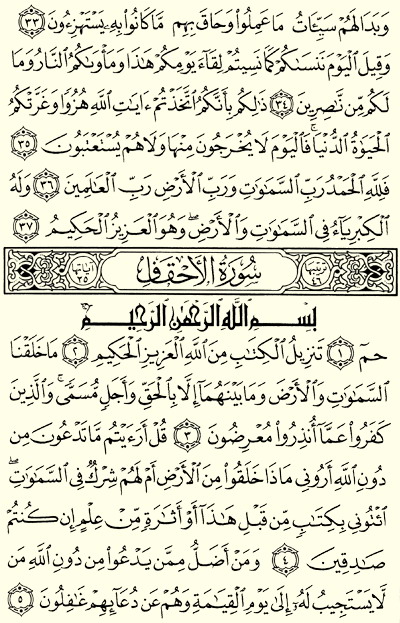 وَبَدَا لَهُمْ سَيِّـَٔاتُ مَا عَمِلُوا۟ وَحَاقَ بِهِم مَّا كَانُوا۟ بِهِۦ يَسْتَهْزِءُونَ ٣٣
وَقِيلَ ٱلْيَوْمَ نَنسَىٰكُمْ كَمَا نَسِيتُمْ لِقَآءَ يَوْمِكُمْ هَٰذَا وَمَأْوَىٰكُمُ ٱلنَّارُ وَمَا
لَكُم مِّن نَّٰصِرِينَ ٣٤ ذَٰلِكُم بِأَنَّكُمُ ٱتَّخَذْتُمْ ءَايَٰتِ ٱللَّهِ هُزُوًا وَغَرَّتْكُمُ
ٱلْحَيَوٰةُ ٱلدُّنْيَا ۚ فَٱلْيَوْمَ لَا يُخْرَجُونَ مِنْهَا وَلَا هُمْ يُسْتَعْتَبُونَ ٣٥
فَلِلَّهِ ٱلْحَمْدُ رَبِّ ٱلسَّمَٰوَٰتِ وَرَبِّ ٱلْأَرْضِ رَبِّ ٱلْعَٰلَمِينَ ٣٦ وَلَهُ
ٱلْكِبْرِيَآءُ فِى ٱلسَّمَٰوَٰتِ وَٱلْأَرْضِ ۖ وَهُوَ ٱلْعَزِيزُ ٱلْحَكِيمُ ٣٧
ترتيبها ٤٦ سُورَةُ الأَحْقَافِ آياتها ٣٥
بِسْمِ ٱللَّهِ ٱلرَّحْمَٰنِ ٱلرَّحِيمِ
حمٓ ١ تَنزِيلُ ٱلْكِتَٰبِ مِنَ ٱللَّهِ ٱلْعَزِيزِ ٱلْحَكِيمِ ٢ مَا خَلَقْنَا
ٱلسَّمَٰوَٰتِ وَٱلْأَرْضَ وَمَا بَيْنَهُمَآ إِلَّا بِٱلْحَقِّ وَأَجَلٍ مُّسَمًّى ۚ وَٱلَّذِينَ
كَفَرُوا۟ عَمَّآ أُنذِرُوا۟ مُعْرِضُونَ ٣ قُلْ أَرَءَيْتُم مَّا تَدْعُونَ مِن
دُونِ ٱللَّهِ أَرُونِى مَاذَا خَلَقُوا۟ مِنَ ٱلْأَرْضِ أَمْ لَهُمْ شِرْكٌ فِى ٱلسَّمَٰوَٰتِ ۖ
ٱئْتُونِى بِكِتَٰبٍ مِّن قَبْلِ هَٰذَآ أَوْ أَثَٰرَةٍ مِّنْ عِلْمٍ إِن كُنتُمْ
صَٰدِقِينَ ٤ وَمَنْ أَضَلُّ مِمَّن يَدْعُوا۟ مِن دُونِ ٱللَّهِ مَن
لَّا يَسْتَجِيبُ لَهُۥٓ إِلَىٰ يَوْمِ ٱلْقِيَٰمَةِ وَهُمْ عَن دُعَآئِهِمْ غَٰفِلُونَ ٥